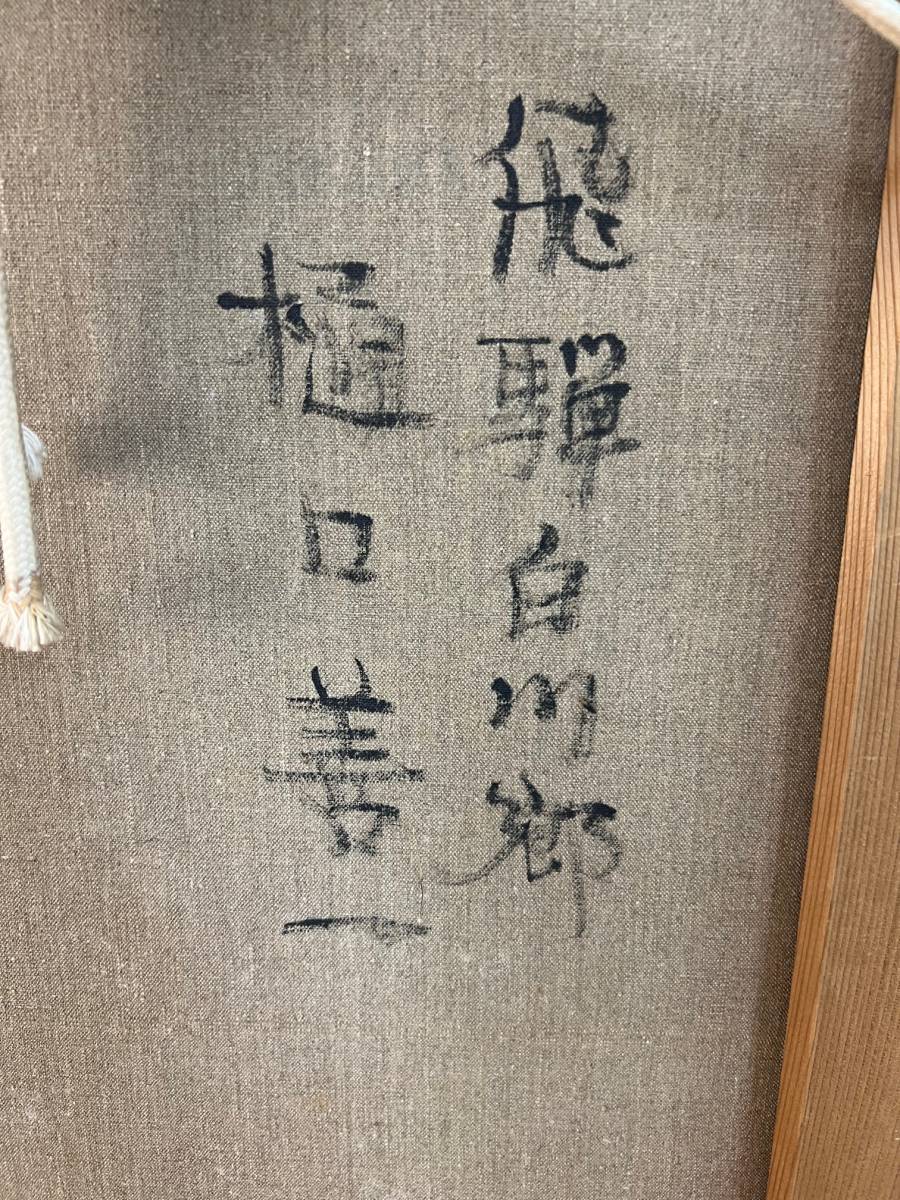 飛騨白川郷
樋口善一